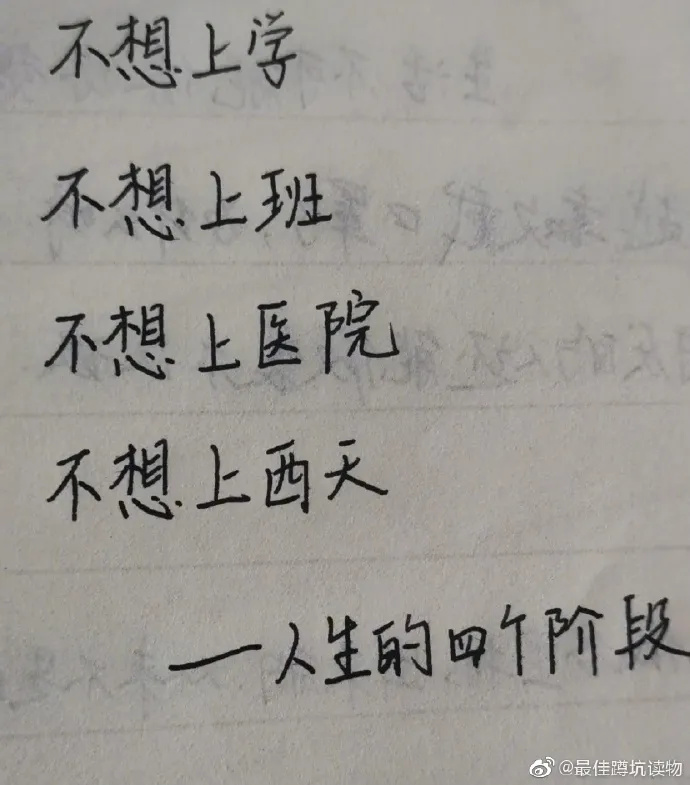 不想上学
不想上班
不想上医院
不想上西天
——人生的四个阶段
@最佳蹲坑读物